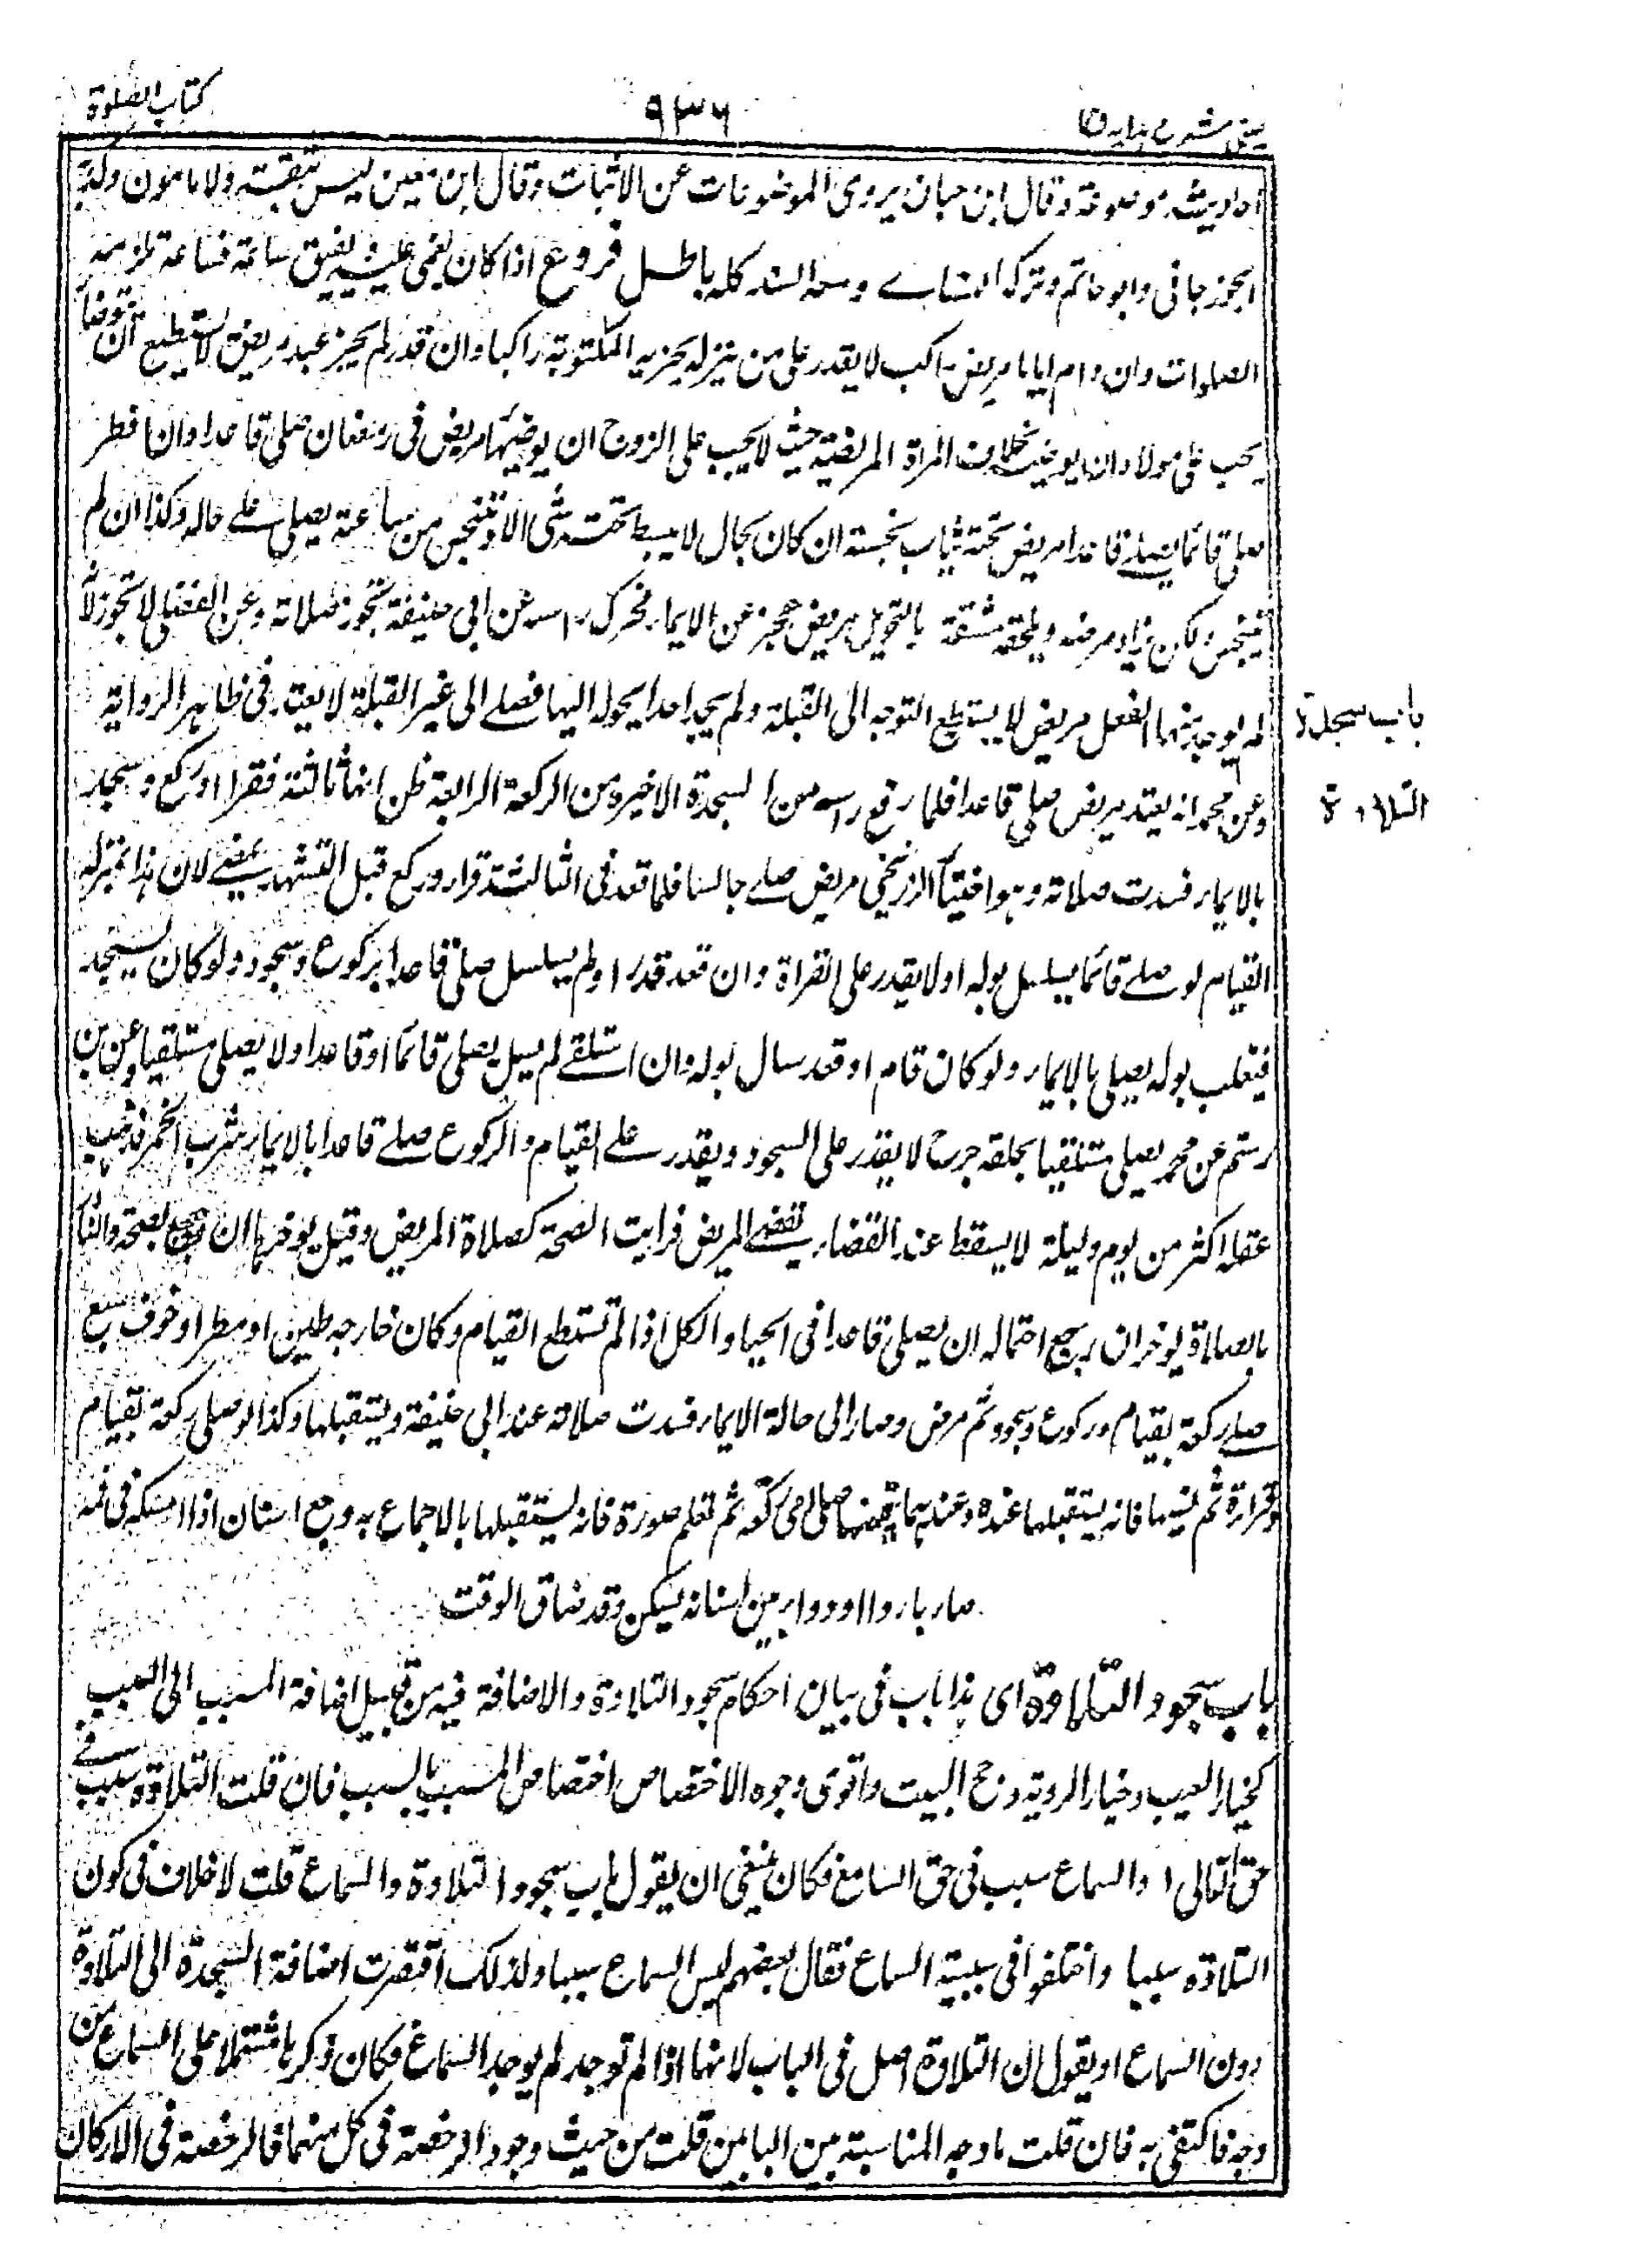 كتاب الصلوة
٩٣٦
عيني شرح هدايه
احاديث موضوعة وقال ابن حبان يروى الموضوعات عن الاثبات وقال ابن معين ليس بثقة ولا مامون وكذبه
الجوزجانى وابو حاتم وتركه النسائى وسمه السند كله باطل فروع اذا كان يغمى عليه ويفيق ساعة فساعة تلزمه
الصلوات وان دام اياما مريض راكب لا يقدر على من ينزله يجزيه المكتوبة راكبا وان قدر لم يجز عبد مريض لا يستطيع ان يتوضأ
يجب على مولاه ان يوضيه بخلاف المراة المريضة حيث لا يجب على الزوج ان يوضيها مريض فى رمضان صلى قاعدا وان افطر
صلى قائما يصلى قاعدا مريض تحته ثياب نجسة ان كان بحال لا يبسط تحته شئ الا وتنجس من ساعته يصلى على حاله وكذا ان لم
يتنجس ولكن يزاد مرضه ويلحقه مشقة بالتحويل مريض عجز عن الايماء فحرك راسه عن ابى حنيفة تجوز صلاته وعن الفضلى لا تجوز لانه
لم يوجد منها الفعل مريض لا يستطيع التوجه الى القبلة ولم يجد احدا يحوله اليها فصلى الى غير القبلة لا يعيد فى ظاهر الرواية
باب سجدة
وعن محمد انه يعيد مريض صلى قاعدا فلما رفع راسه من السجدة الاخيرة من الركعة الرابعة ظن انها ثالثة فقرا وركع وسجد
التلاوة
بالايماء فسدت صلاته وهو اختيار الزرنجى مريض صلى جالسا فلما قعد فى الثالثة قرا وركع قبل التشهد يمضى لان هذا بمنزلة
القيام لو صلى قائما يسلسل بوله او لا يقدر على القراة وان قعد قدر او لم يسلسل صلى قاعدا بركوع وسجود ولو كان يسجد
فيغلب بوله يصلى بالايماء ولو كان قام او قعد سال بوله وان استلقى لم يسل يصلى قائما او قاعدا ولا يصلى مستلقيا وعن ابن
رستم عن محمد يصلى مستلقيا بحلقه جرح لا يقدر على السجود ويقدر على القيام والركوع صلى قاعدا بالايماء شرب الخمر فذهب
عقله اكثر من يوم وليلة لا يسقط عنه القضاء يقضى المريض فوايت الصحة كصلاة المريض وقيل يوخرها ان رجى الصحة
بالصلاة يوخر ان رجى احتماله ان يصلى قاعدا فى الحيا والكل اذا لم تستطع القيام وكان خارجه طين او مطر او خوف سبع
صلى ركعة بقيام وركوع وسجود ثم مرض وصار الى حالة الايماء فسدت صلاته عند ابى حنيفة ويستقبلها وكذا لو صلى ركعة بقيام
وقراءة ثم نسيها فانه يستقبلها عنده وعندهما يتمها صلى امى ركعة ثم تعلم سورة فانه يستقبلها بالاجماع به وجع اسنان اذا امسكه فى فمه
ماء باردا او دواء بين اسنانه يسكن وقد ضاق الوقت
باب سجود التلاوة اى هذا باب فى بيان احكام سجود التلاوة والاضافة فيه من قبيل اضافة المسبب الى السبب
كخيار العيب وخيار الروية وحج البيت واقوى وجوه الاختصاص اختصاص المسبب بالسبب فان قلت التلاوة سبب فى
حق التالى والسماع سبب فى حق السامع فكان ينبغى ان يقول باب سجود التلاوة والسماع قلت لا خلاف فى كون
التلاوة سببا واختلفوا فى سببية السماع فقال بعضهم ليس السماع سببا ولذلك اقتصرت اضافة السجدة الى التلاوة
دون السماع او يقول ان التلاوة اصل فى الباب لانها اذا لم توجد لم يوجد السماع فكان ذكرها مشتملا على السماع من
وجه فاكتفى به فان قلت ما وجه المناسبة بين البابين قلت من حيث وجود الرخصة فى كل منهما فالرخصة فى الاركان